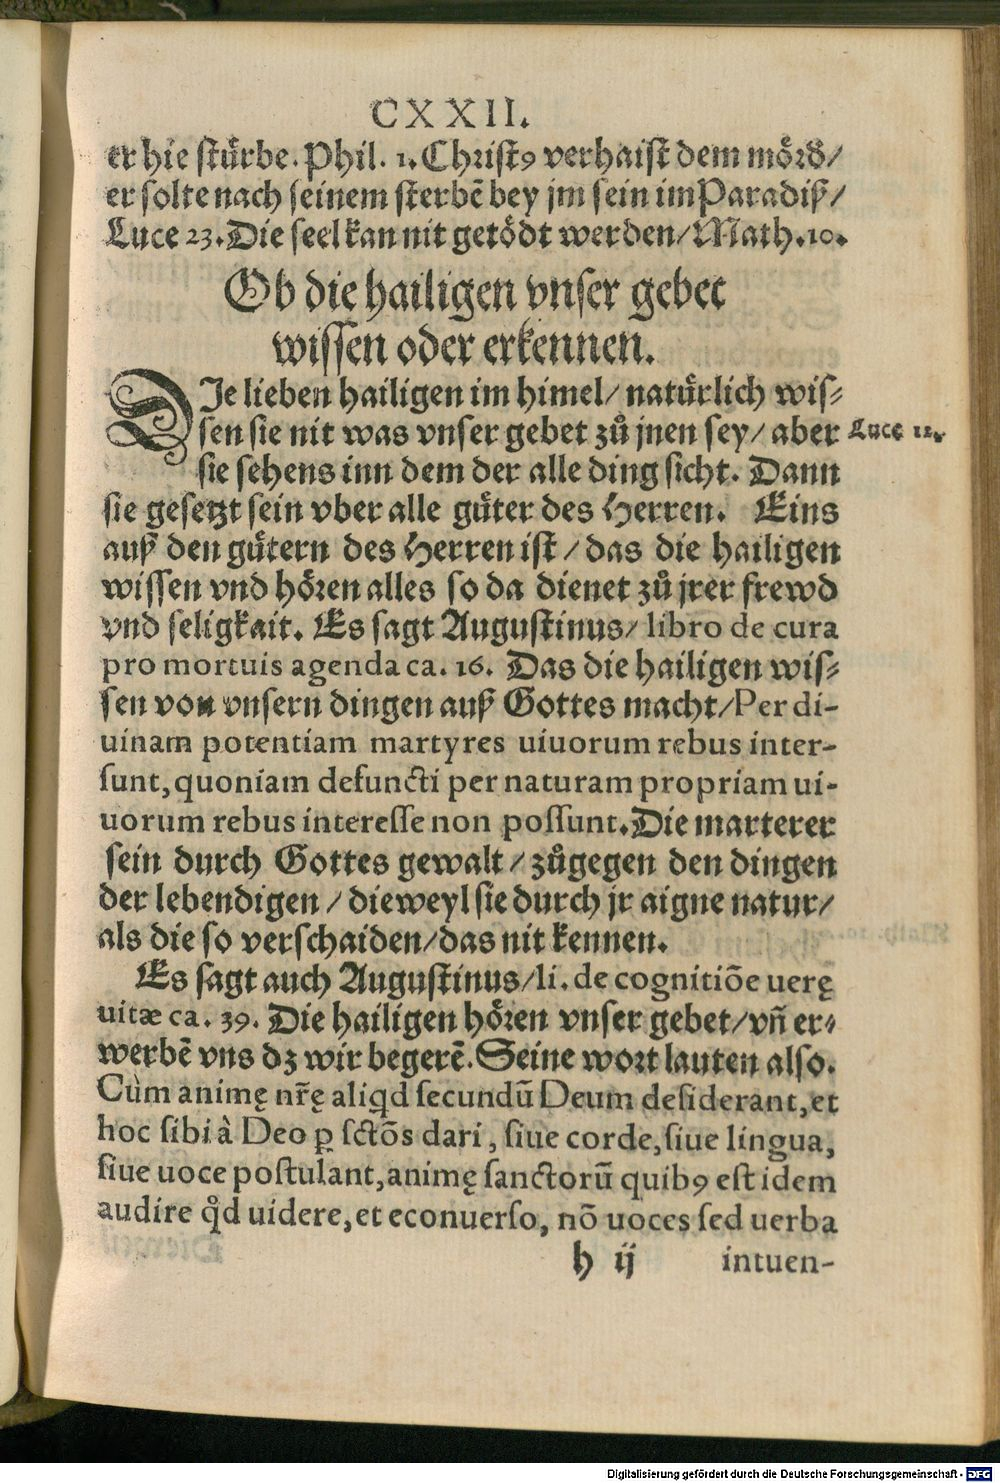 CXXII.
er hie stürbe. Phil. 1. Christꝰ verhaist dem mörd/
er solte nach seinem sterbē bey jm sein im Paradiß/
Luce 23. Die seel kan nit getödt werden/ Math. 10.
Ob die hailigen vnser gebet
wissen oder erkennen.
DIe lieben hailigen im himel/ natürlich wis⸗
sen sie nit was vnser gebet zů jnen sey/ aber
Luce 11.
sie sehens inn dem der alle ding sicht. Dann
sie gesetzt sein vber alle güter des Herren. Eins
auß den gütern des Herren ist / das die hailigen
wissen vnd hören alles so da dienet zů jrer frewd
vnd seligkait. Es sagt Augustinus/ libro de cura
pro mortuis agenda ca. 16. Das die hailigen wis⸗
sen von vnsern dingen auß Gottes macht/ Per di-
uinam potentiam martyres uiuorum rebus inter-
sunt, quoniam defuncti per naturam propriam ui-
uorum rebus interesse non possunt. Die marterer
sein durch Gottes gewalt / zůgegen den dingen
der lebendigen / dieweyl sie durch jr aigne natur/
als die so verschaiden/ das nit kennen.
Es sagt auch Augustinus/ li. de cognitiõe uerę
uitæ ca. 39. Die hailigen hören vnser gebet/ vñ er⸗
werbē vns dz wir begerē. Seine wort lauten also.
Cùm animę nr̃ę aliqd secundũ Deum desiderant, et
hoc sibi à Deo ꝑ sctõs dari, siue corde, siue lingua,
siue uoce postulant, animę sanctorũ quibꝰ est idem
audire qd uidere, et econuerso, nõ uoces sed uerba
h ij intuen-
Digitalisierung gefördert durch die Deutsche Forschungsgemeinschaft - DFG